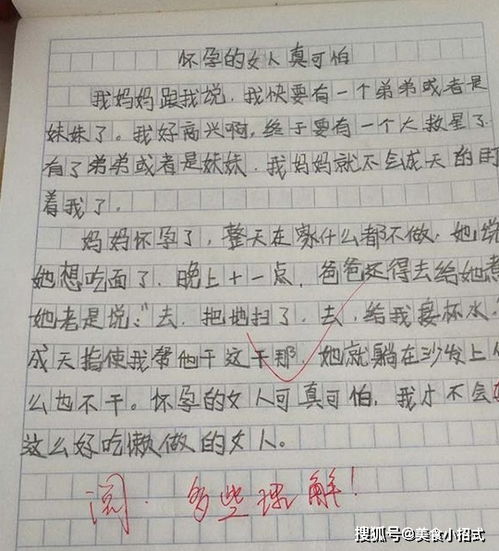 怀孕的女人真可怕
我妈妈跟我说,我快要有一个弟弟或者是
妹妹了。我好高兴啊,终于要有一个大救星了
有了弟弟或者是妹妹,我妈妈就不会成天的盯
着我了。
妈妈怀孕了,整天在家什么都不做,她说
她想吃面了,晚上十一点,爸爸还得去给她煮
她老是说:“去,把地扫了,去,给我接杯水。
成天指使我帮他干这干那,她就躺在沙发上什
么也不干。怀孕的女人可真可怕,我才不会
这么好吃懒做的女人。
阅.多些理解!
搜狐号@美食小招式